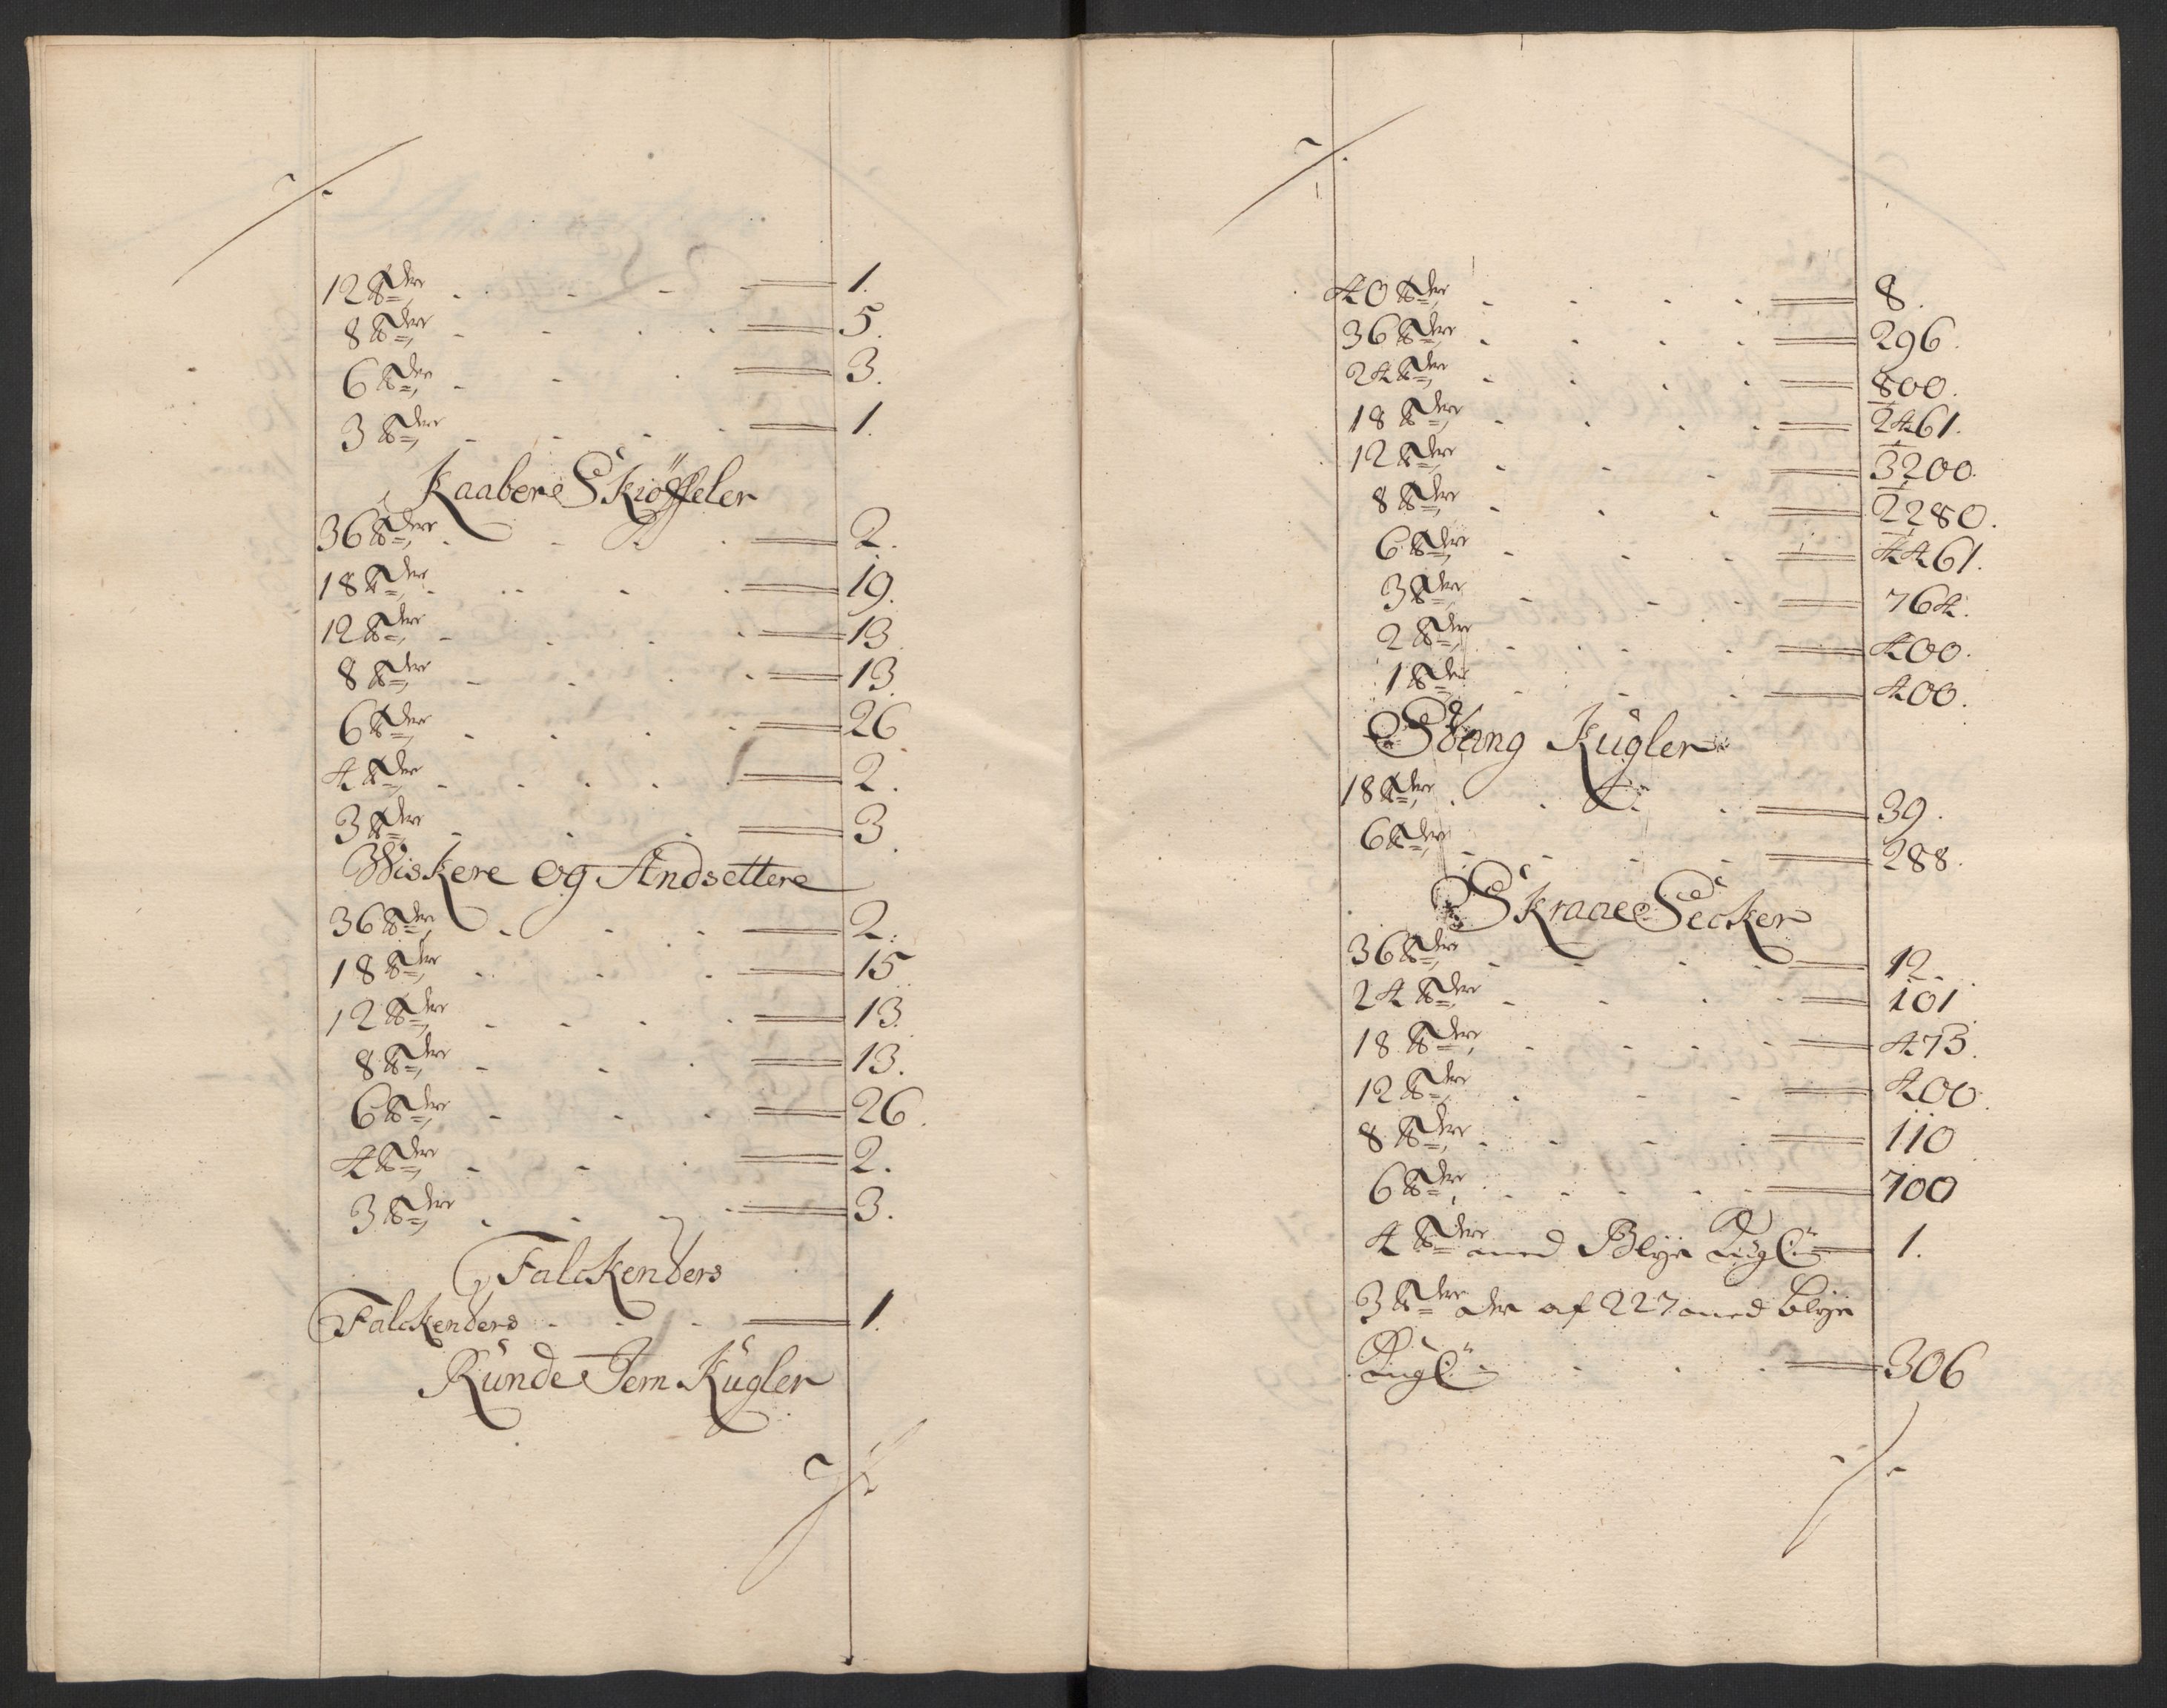 12 ℔der 1.
8 ℔der 5.
6 ℔der 3.
3 ℔der 1.
Kaabere Skiöffeler
36 ℔der 2.
18 ℔der 19.
12 ℔der 13
8 ℔der 13.
6 ℔der 26
4 ℔der 2.
3 ℔der 3
Wiskere og Andsettere
36 ℔der 2.
18 ℔der 15
12 ℔der 13.
8 ℔der 13.
6 ℔der 26.
4 ℔der 2.
3 ℔der 3.
Falckenders
Falckenders 1.
Runde Jern Kugler
40 ℔der 8.
36 ℔der 296.
24 ℔der 800.
18 ℔der 2461.
12 ℔der 3200.
8 ℔der 2280.
6 ℔der 4461.
3 ℔der 764.
2 ℔der 400.
1 ℔der 400.
Stang Kugler
18 ℔der 39.
6 ℔der 288.
Skraae Secker
36 ℔der 12.
24 ℔der 101
18 ℔der 473.
12 ℔der 400.
8 ℔der 110
6 ℔der 700
4 ℔der med Blye Kugl: 1.
3 ℔der der af 227 med blye
Kugl: 306